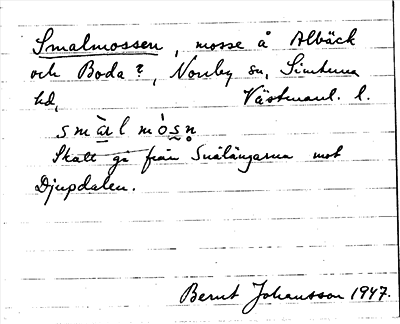 Smalmossen, mosse å Albäck
och Boda?, Norrby sn, Simtuna
hd, Västmanl. l.
smàlmò̀sn
Skall gå från Snålängarna mot
Djupdalen.
Bernt Johansson 1947.